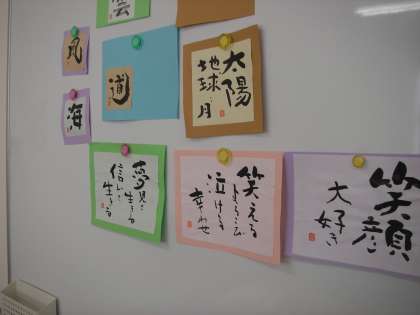 雲
風
道
太陽
地球・月
海
夢見て
生きる
信じて
生きる
笑える
よろこび
泣ける
幸わせ
笑顔
大好き